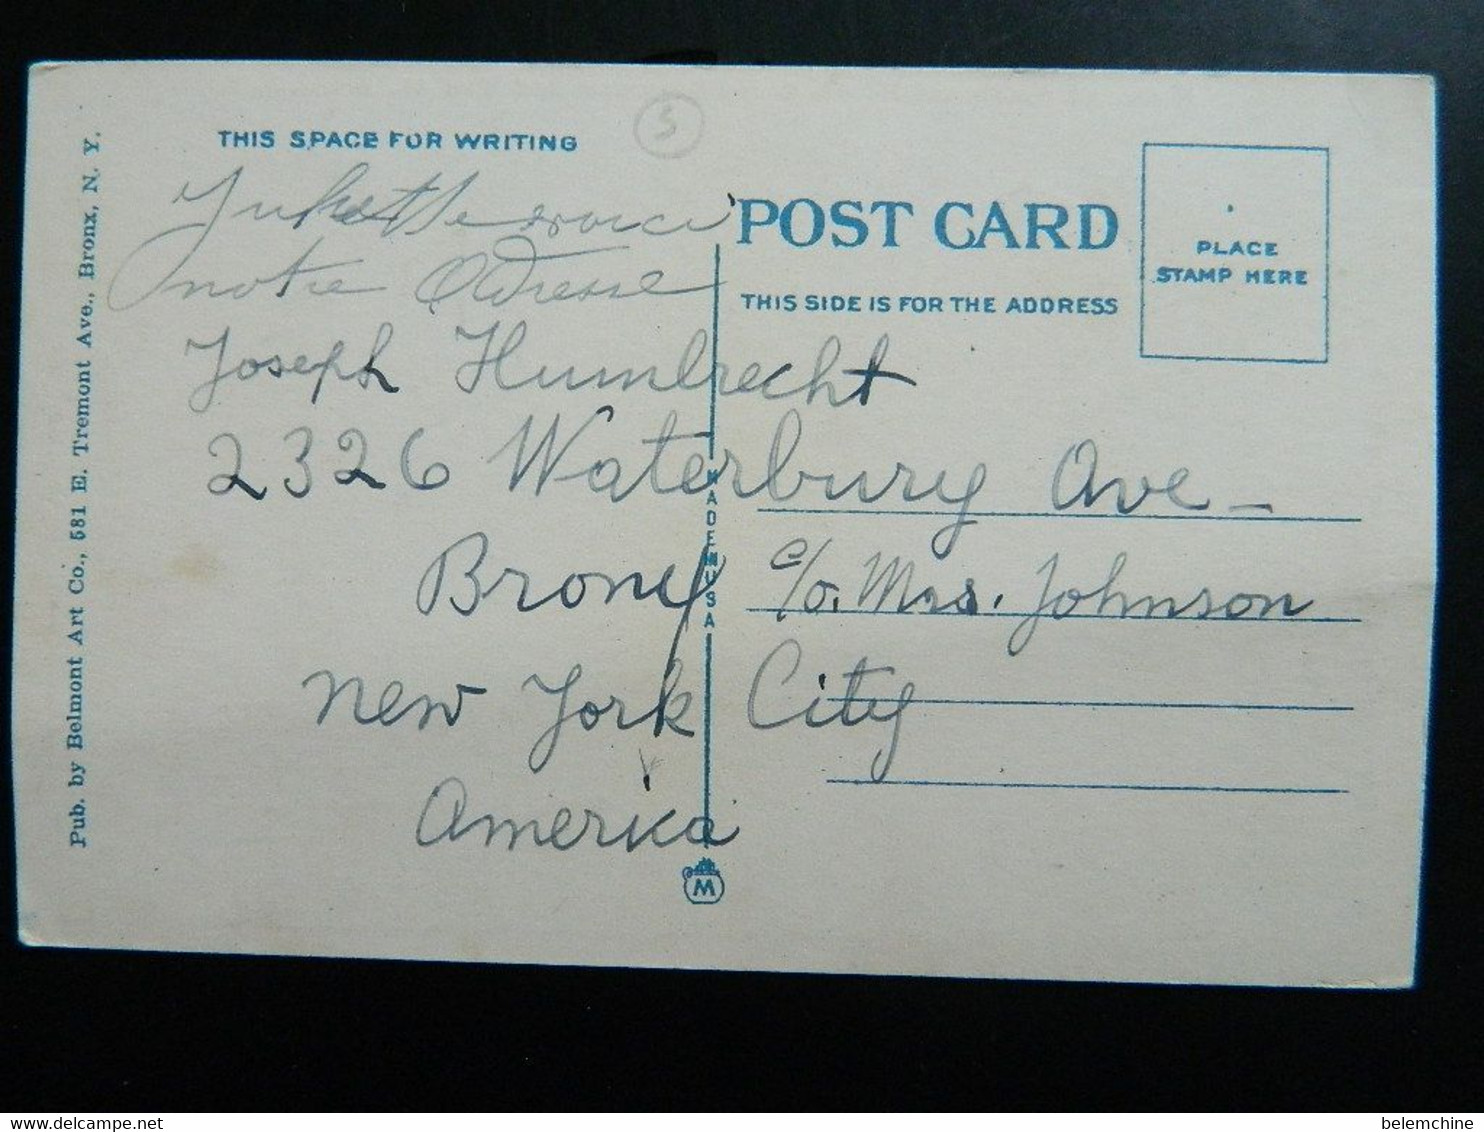 THIS SPACE FOR WRITING
5
Juliette voici
notre Adresse
Joseph Humbrecht
2326 Waterbury Ave-
Bronx c/o. Mrs. Johnson
New York City
America
POST CARD
THIS SIDE IS FOR THE ADDRESS
PLACE
STAMP HERE
MADE IN USA
M
Pub. by Belmont Art Co., 581 E. Tremont Ave., Bronx, N. Y.
delcampe.net
belemchine